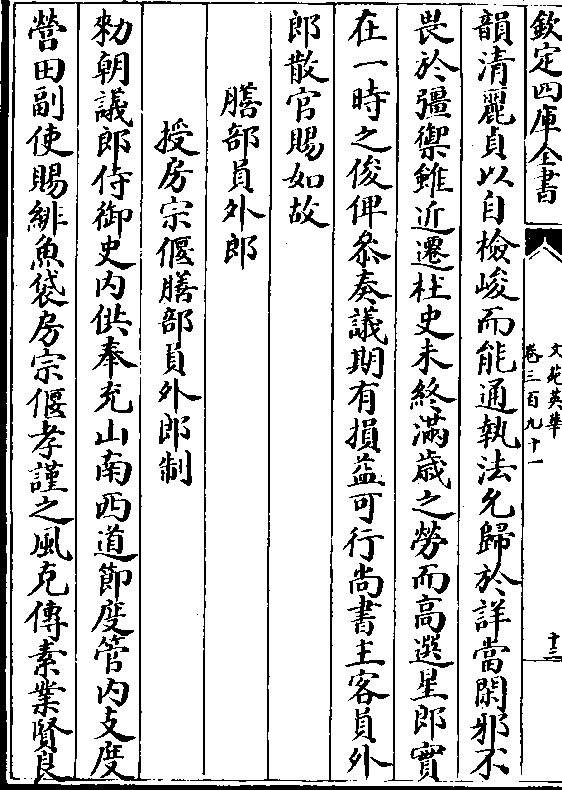 欽定四庫全書
文苑英華
卷三百九十一
十三
韻清麗貞以自檢峻而能通執法允歸於詳當閑邪不
畏於彊禦雖近遷柱史未終滿歳之勞而高選星郎實
在一時之俊俾叅奏議期有損益可行尚書主客員外
郎散官賜如故
膳部員外郎
授房宗偃膳部員外郎制
勑朝議郎侍御史内供奉充山南西道節度管内支度
營田副使賜緋魚袋房宗偃孝謹之風克傳素業賢良